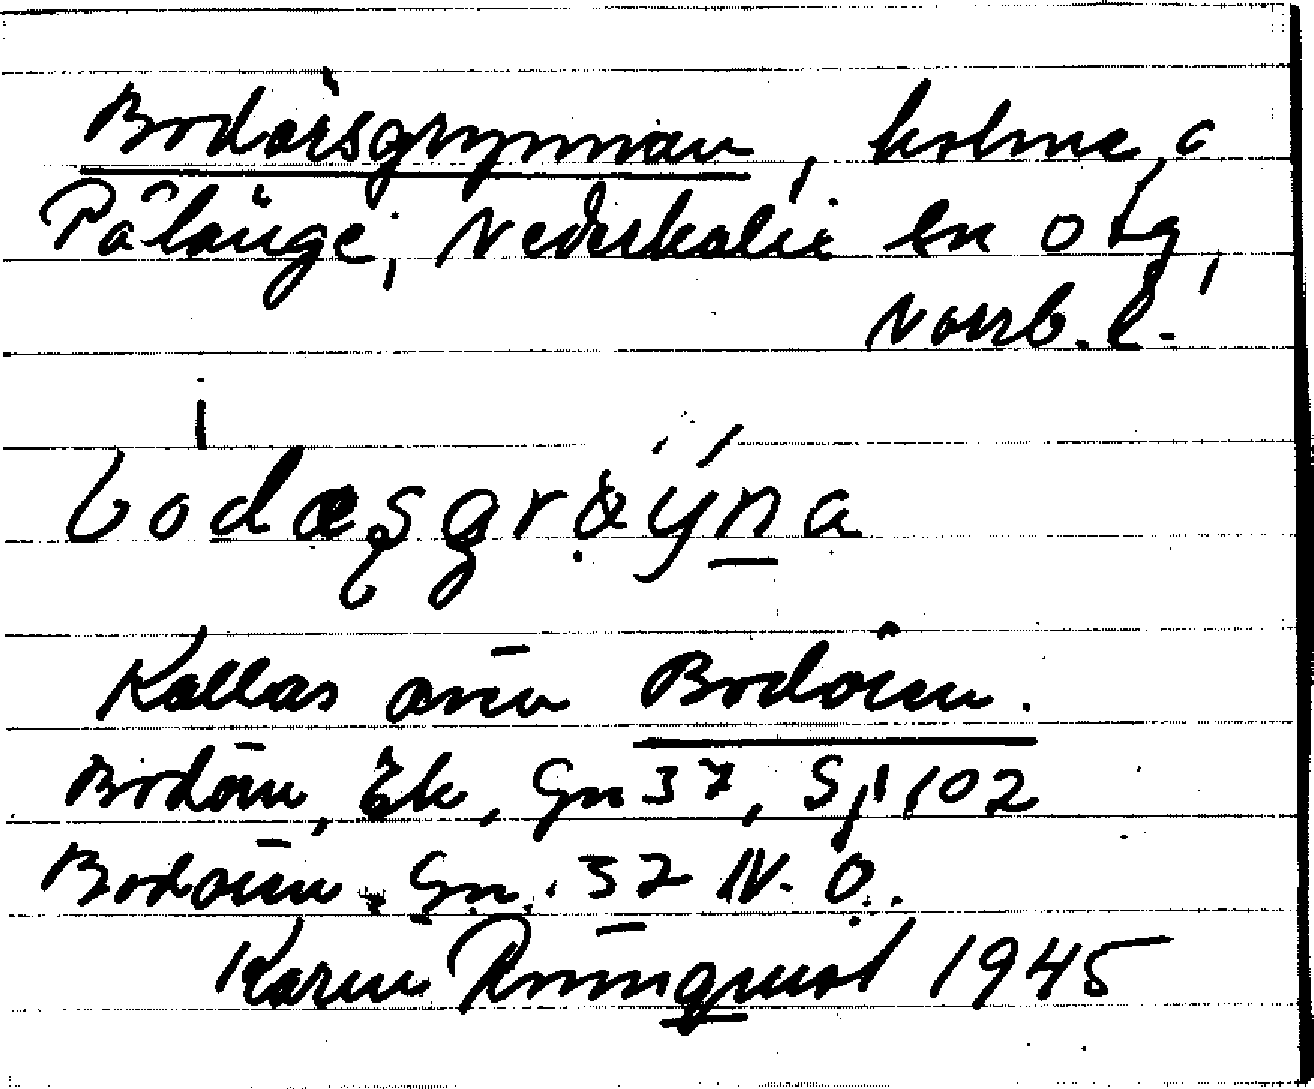 Bodörsgrynnan, holme, a
Pålänge, Nederkalix sn o tg,
Norrb. l.
bodæsgrøyna
Kallas även Bodören.
Bodön, Ek, Gn 37, Sj 102
Bodören. Gn. 37 N. O.
Karin Rönnquist 1945